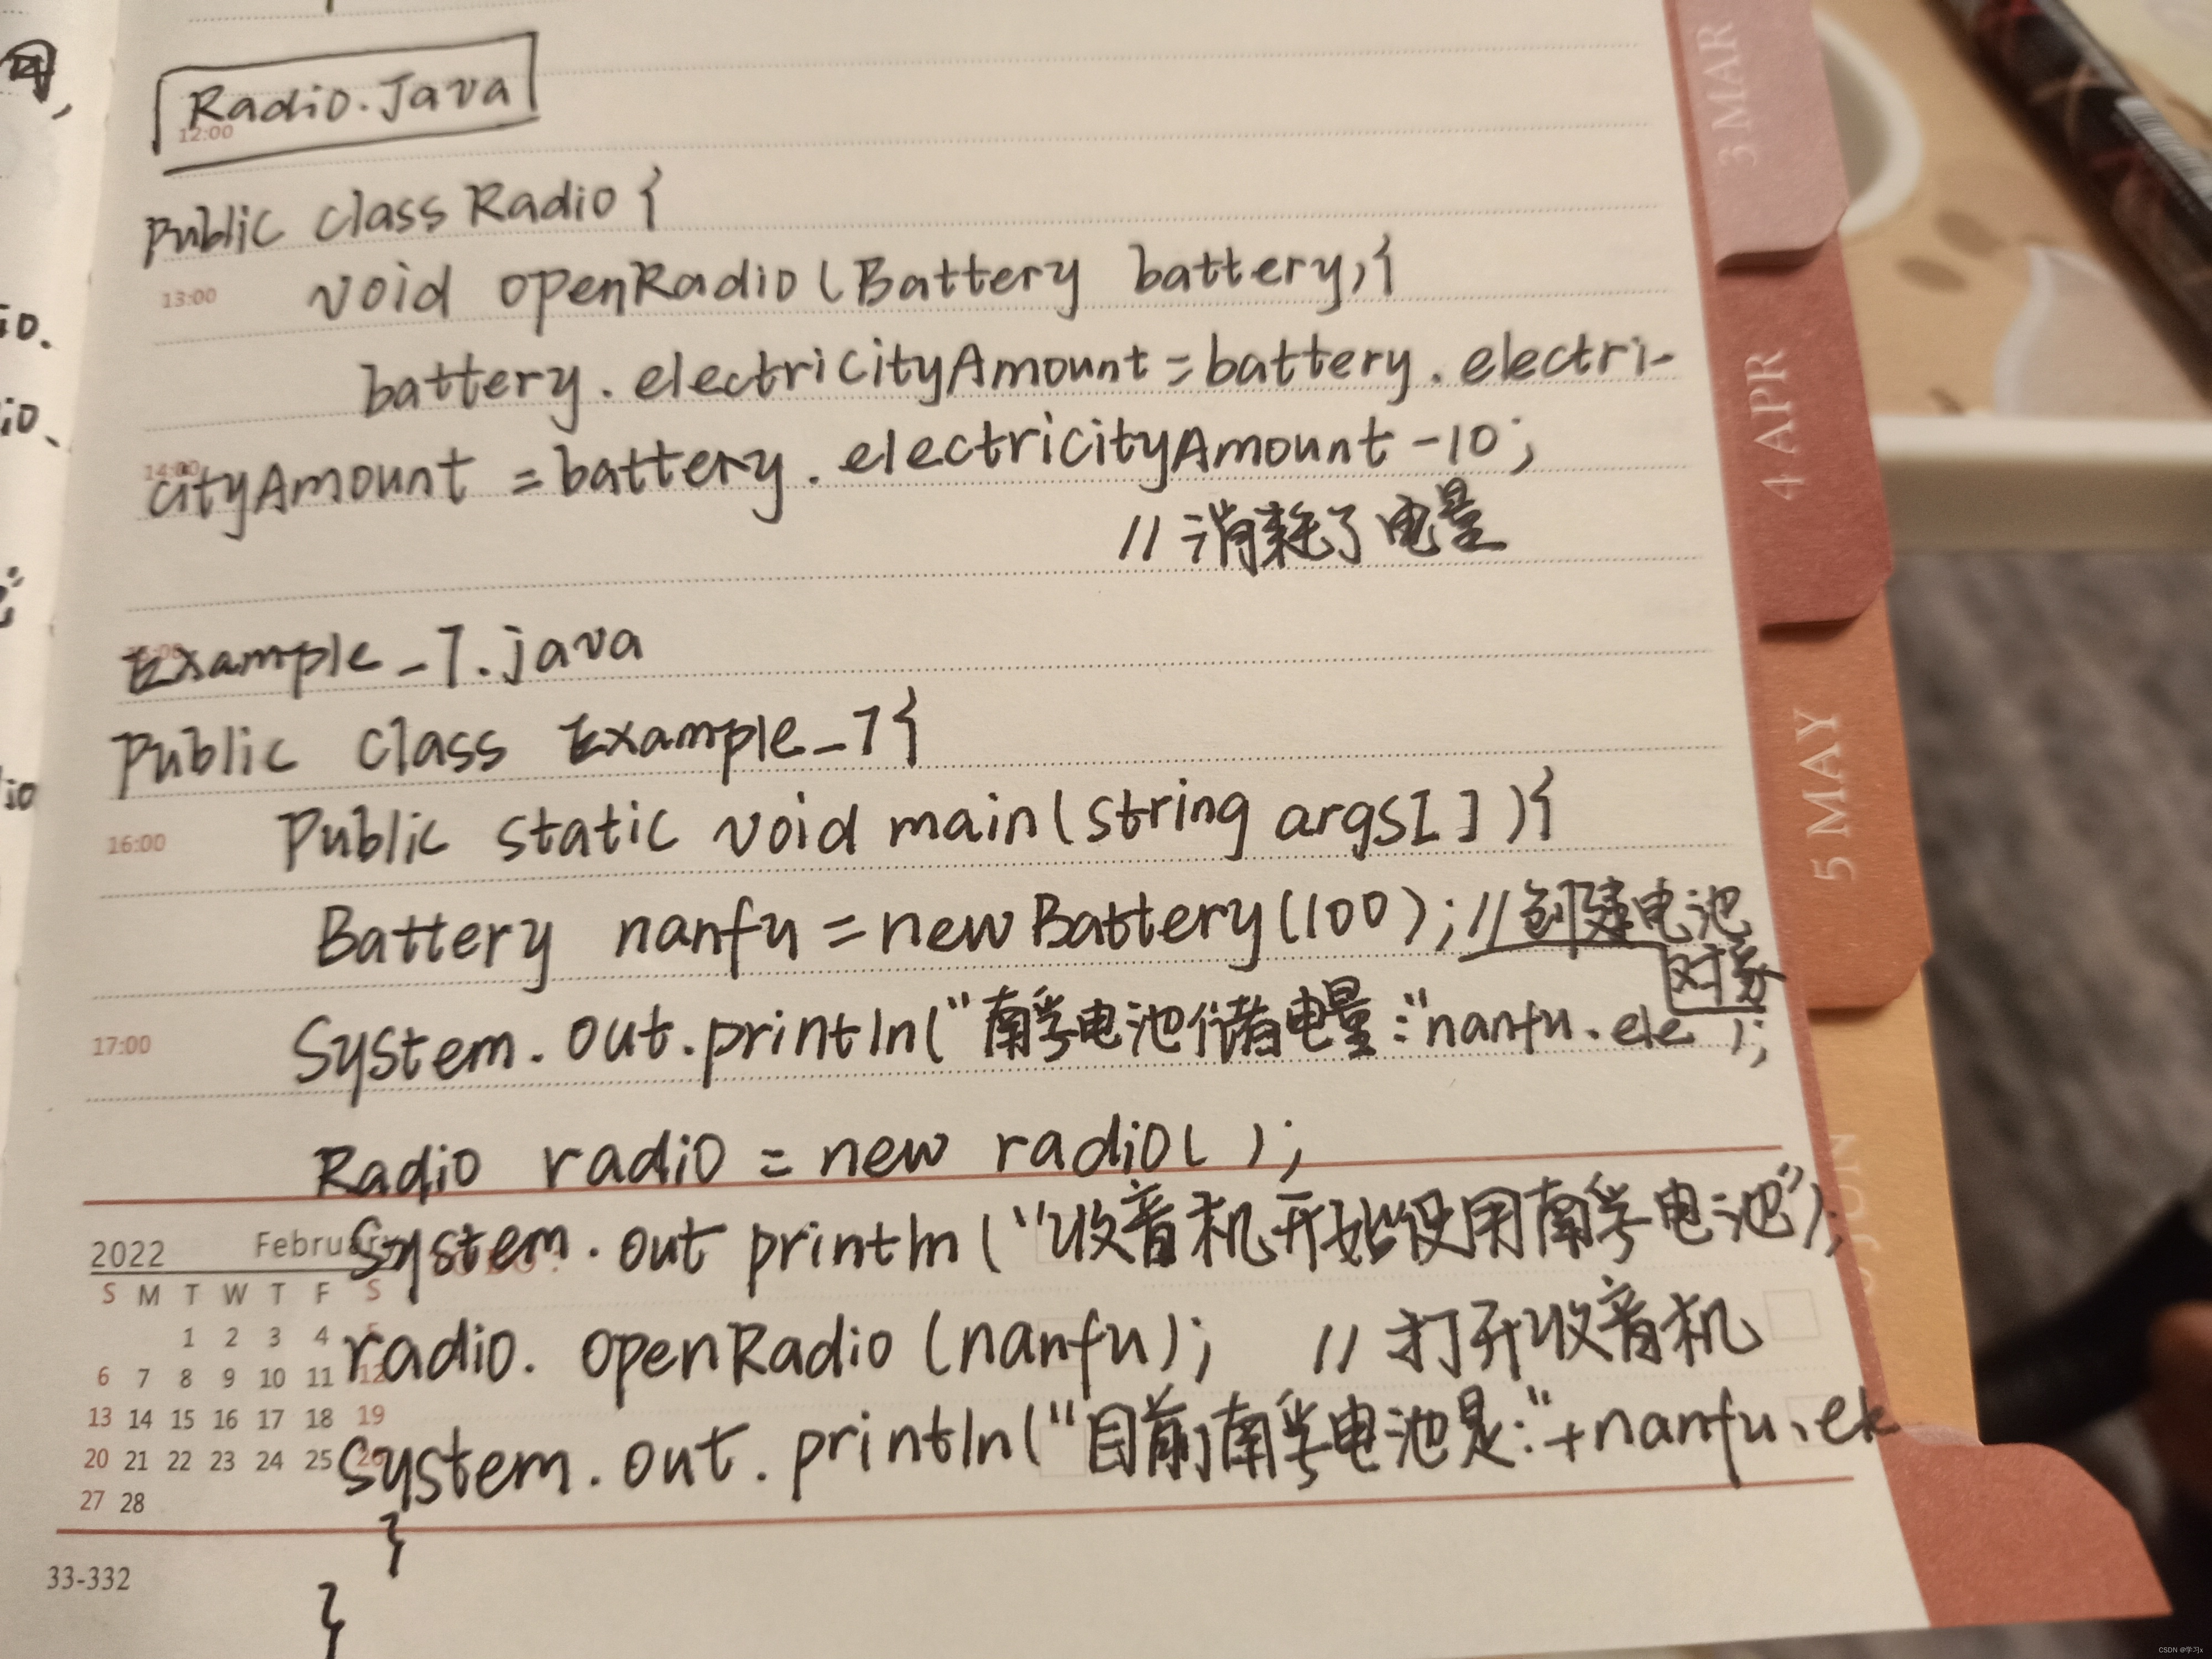 Radio.Java
12:00
public class Radio {
13:00 void openRadio (Battery battery){
battery. electricityAmount = battery. electri-
14:00 cityAmount = battery. electricityAmount -10;
// 消耗了电量
Example_7.java
Public class Example_7{
16:00 Public static void main(string args[ ]){
Battery nanfu = new Battery(100); // 创建电池
对象
17:00 System. out.println("南孚电池储电量:"nanfu.ele );
Radio radio = new radio( );
System. out println ("收音机开始使用南孚电池");
radio. openRadio (nanfu); // 打开收音机
System. out. println("目前南孚电池是:"+nanfu.ele
}
}
2022 February
S M T W T F S
1 2 3 4 5
6 7 8 9 10 11 12
13 14 15 16 17 18 19
20 21 22 23 24 25 26
27 28
33-332
3 MAR
4 APR
5 MAY
JUN
io.
io.
io
CSDN @学习x